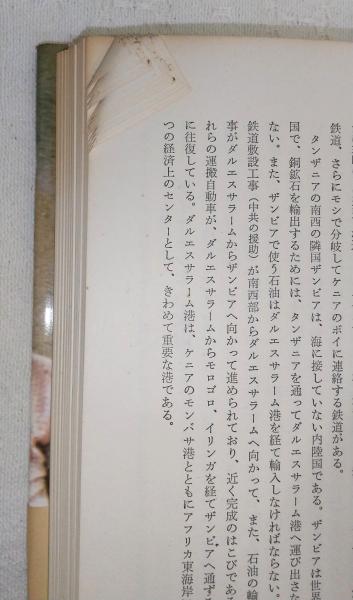 鉄道、さらにモシで分岐してケニアのボイに連絡する鉄道がある。
タンザニアの南西の隣国ザンビアは、海に接していない内陸国である。ザンビアは世界
国で、銅鉱石を輸出するためには、タンザニアを通ってダルエスサラーム港へ運び出さな
ない。また、ザンビアで使う石油はダルエスサラーム港を経て輸入しなければならない。
鉄道敷設工事（中共の援助）が南西部からダルエスサラームへ向かって、また、石油の輸
事がダルエスサラームからザンビアへ向かって進められており、近く完成のはこびである
れらの運搬自動車が、ダルエスサラームからモロゴロ、イリンガを経てザンビアへ通ず
に往復している。ダルエスサラーム港は、ケニアのモンバサ港とともにアフリカ東海岸
つの経済上のセンターとして、きわめて重要な港である。